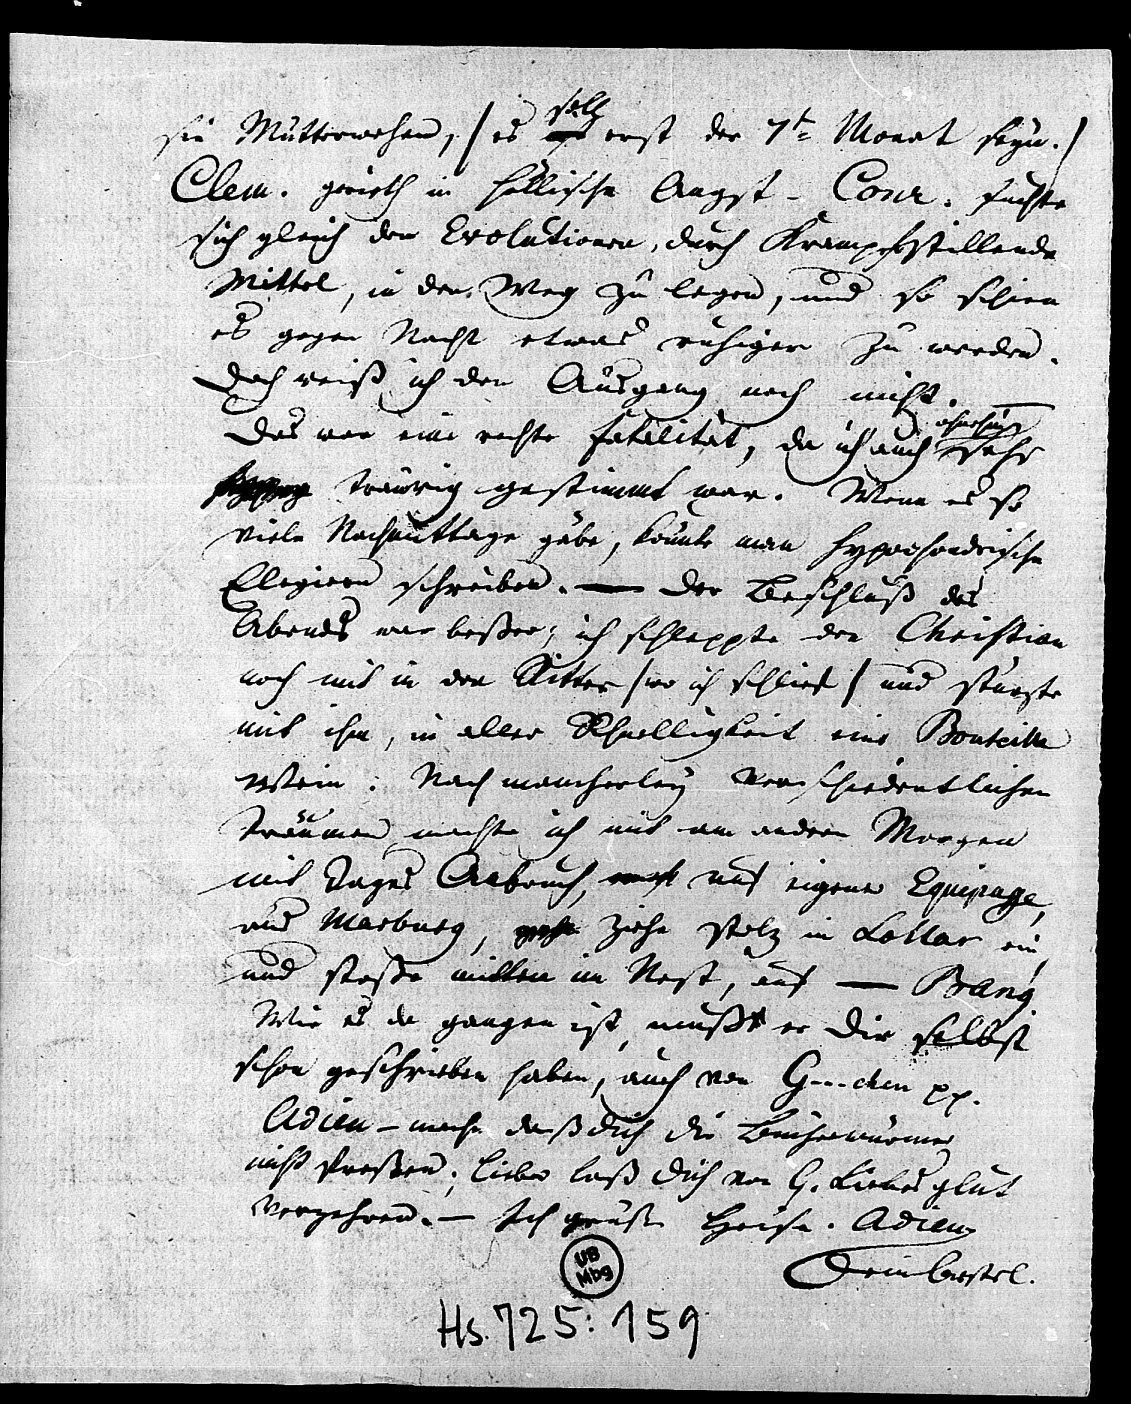 sie Mutterwehen, / es soll erst der 7te Monat seyn. /
Clem. gerieth in höllische Angst - Conr. suchte
sich gleich den Evolutionen, durch Krampfstillende
Mittel, in den Weg zu legen, und so schien
es gegen Nacht etwas ruhiger zu werden.
Doch weiß ich den Ausgang noch nicht. —
Das war eine rechte Fatalität, da ich auch ohnehin sehr
traurig gestimmt war. Wenn es so
viele Nachmittage gäbe, könnte man hypochondrische
Elegieen schreiben. — Der Beschluß des
Abends war beßer; ich schleppte den Christian
noch mit in den Ritter / wo ich schlief / und stürzte
mit ihm, in aller Schnelligkeit eine Bouteille
Wein. Nach mancherley verschiedentlichen
Träumen machte ich mich am andern Morgen
mit Tages Anbruch, auf eigener Equipage,
aus Marburg, ziehe stolz in Lollar ein,
und stoße mitten im Nest, auf — Bang
Wie es da gangen ist, muß er Dir selbst
schon geschrieben haben, auch von G---chen pp.
Adieu - mache daß dich die Bücherwürmer
nicht freßen; lieber laß dich von G. Liebesglut
verzehren. — Ich grüße Heise. Adieu
Dein
UB
Mbg
Hs. 725: 159